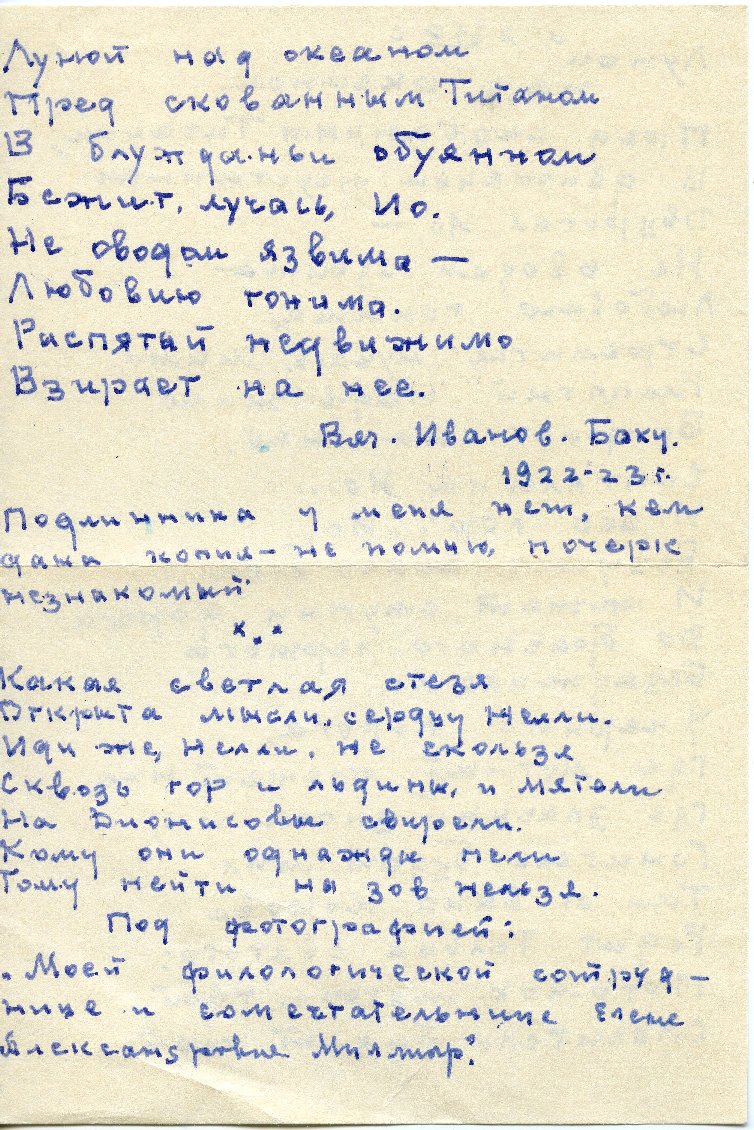 Луной над океаном
Пред скованным Титаном
В блужданьи обуянном
Бежит, лучась, Ио.
Не оводом язвима —
Любовию гонима.
Распятый недвижимо
Взирает на нее.
Вяч. Иванов. Баку.
1922-23 г.
Подлинника у меня нет, кем
дана копия — не помню, почерк
незнакомый
* * *
Какая светлая стезя
Открыта мысли, сердцу Нелли.
Иди же, Нелли, не скользя
Сквозь гор и льдины, и мятели
На Дионисовы свирели.
Кому они однажды пели
Тому нейти на зов нельзя.
Под фотографией:
„Моей филологической сотруд-
нице и сомечтательнице Елене
Александровне Миллиор."